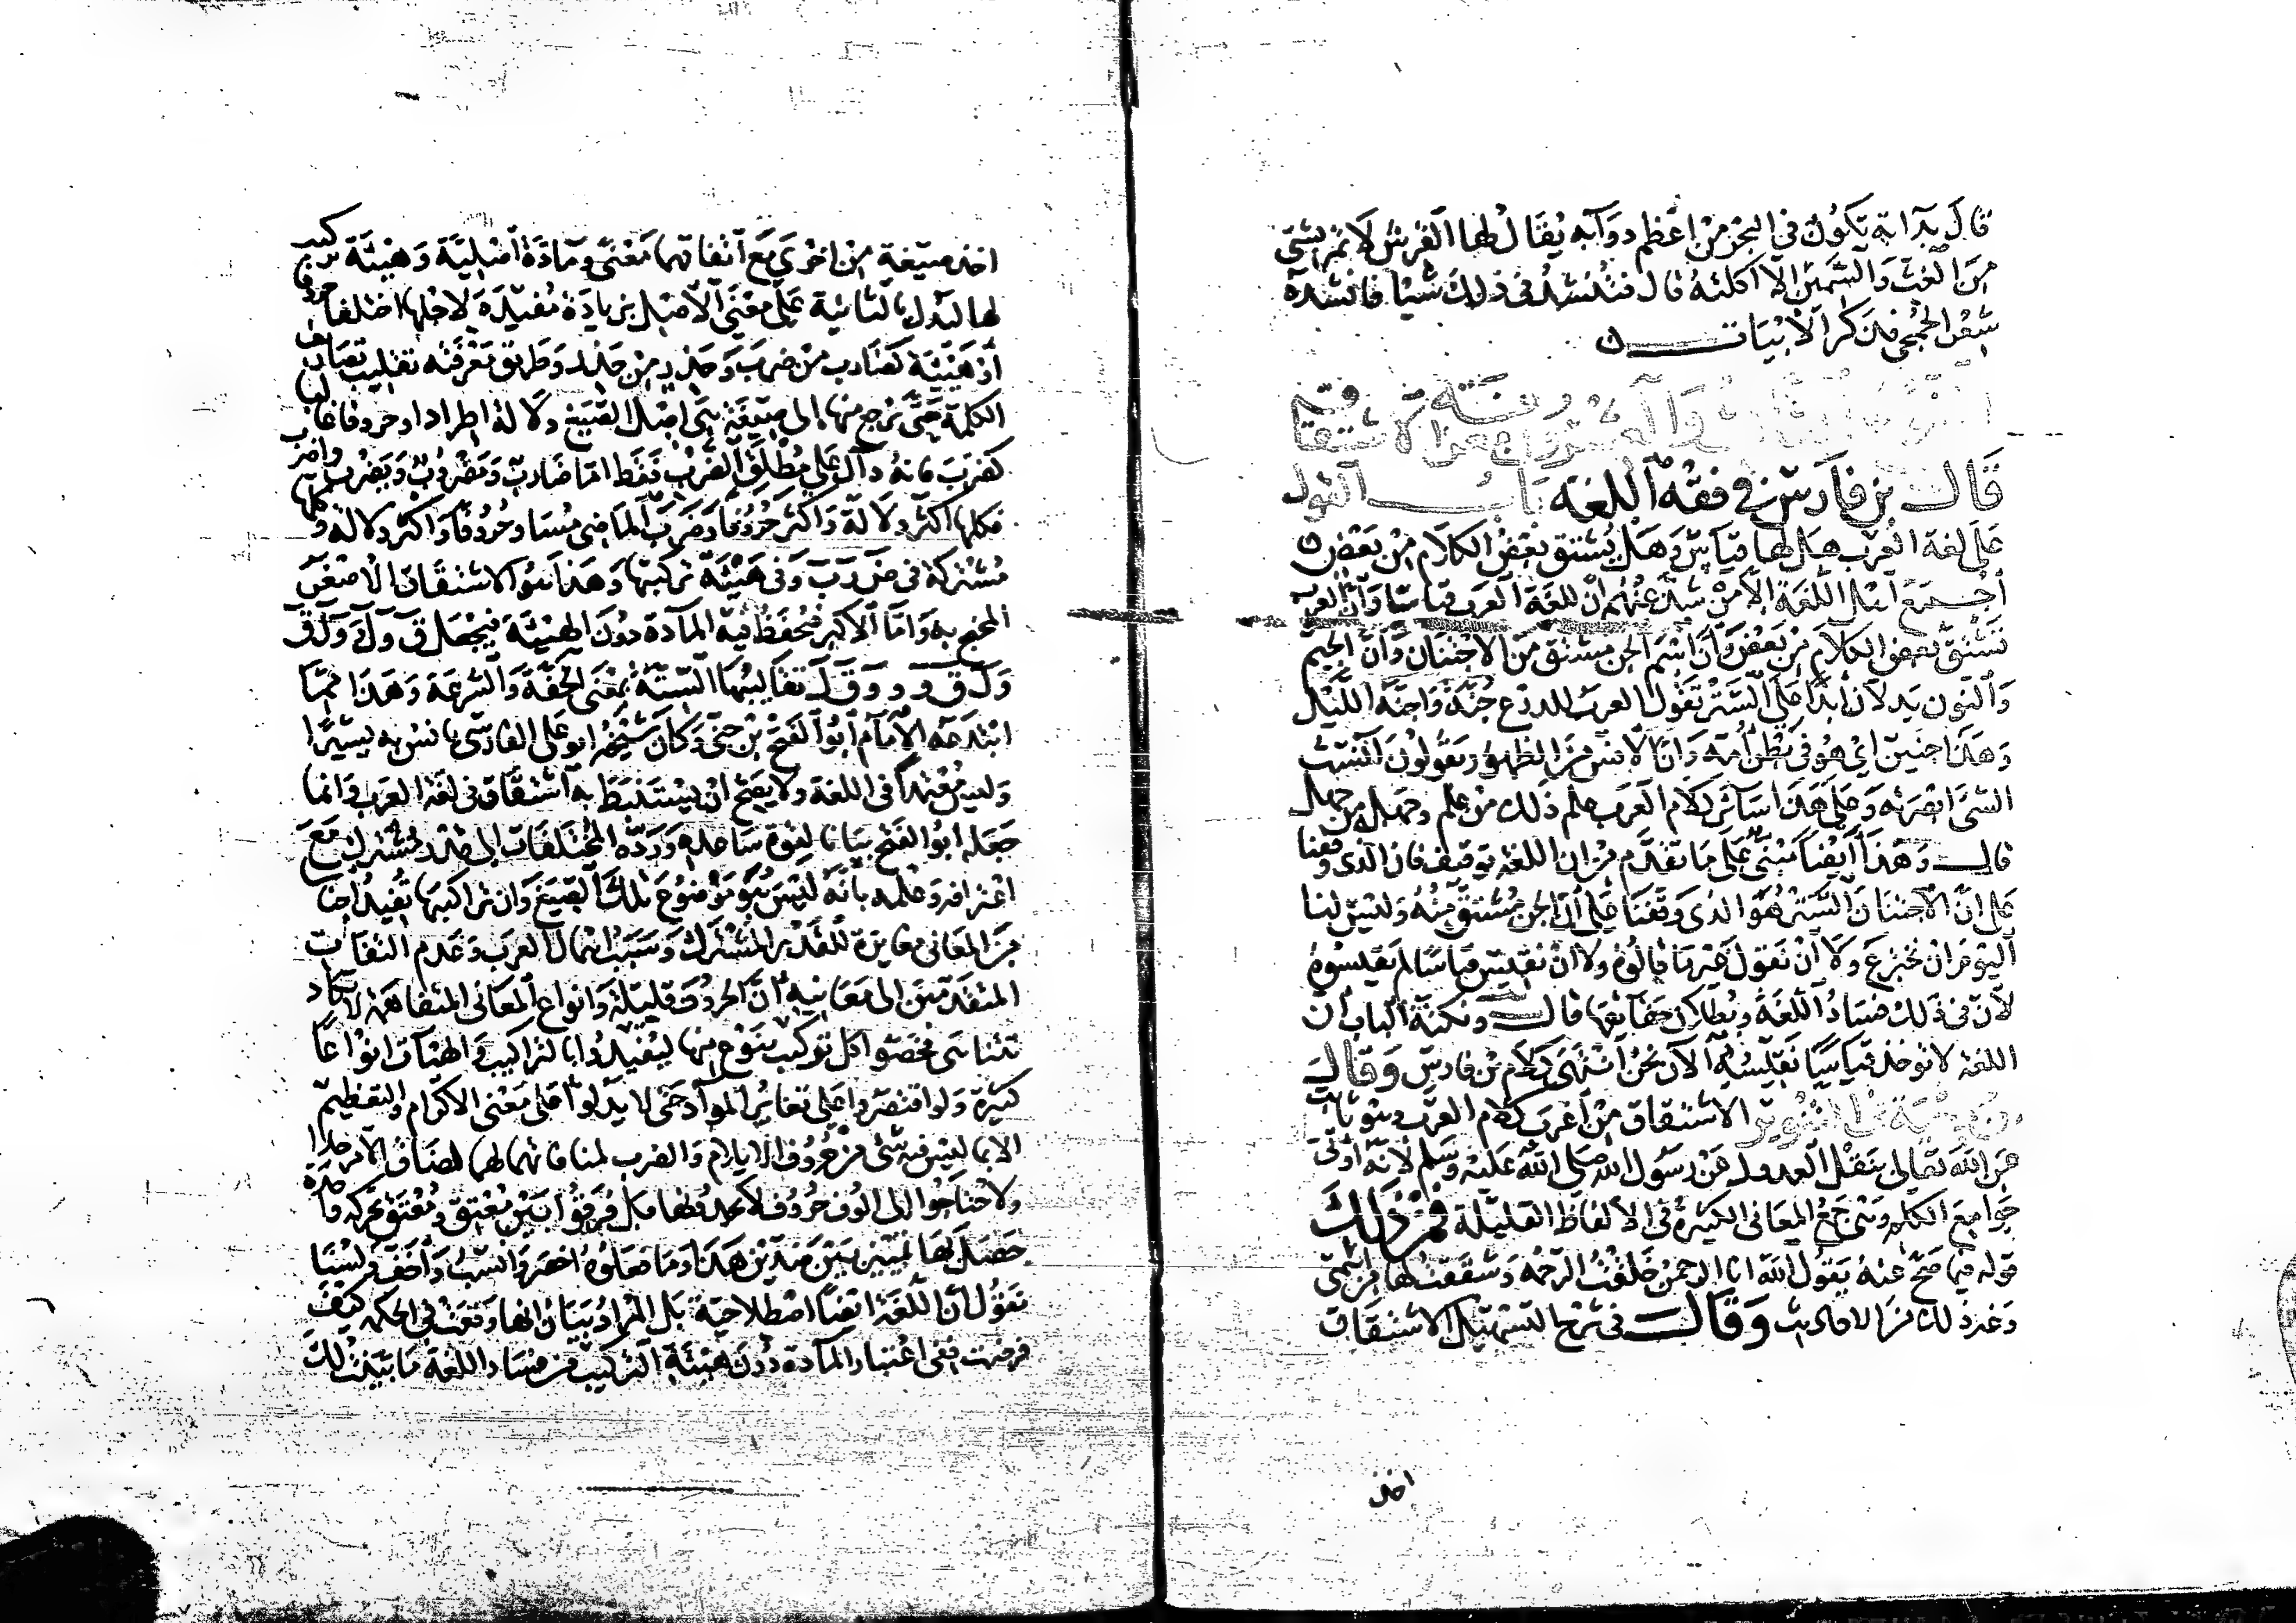 قال بدابة تكون في البحر من اعظم دوآبه يقال لها القرش لا تمر بشي
من الغث والسمين الا اكلته قال فتنشد في ذلك شيا فانشده
شعر الجمحي فذكر الابيات
النوع الثالث والعشرون معرفة الاشتقاق
قال بن فارس في فقه اللغة باب القول
على لغة العرب هل لها قياس وهل يشتق بعض الكلام من بعض
اجمع اهل اللغة الا من شذ عنهم ان للغة العرب قياسا وان العرب
تشتق بعض الكلام من بعض وان اسم الجن مشتق من الاجتنان وان الجيم
والنون يدلان ابدا على الستر تقول العرب للدرع جنة واجنه الليل
وهذا جنين اي هو في بطن امه وان الانس من الظهور يقولون انست
الشئ ابصرته وعلى هذا سائر كلام العرب علم ذلك من علم وجهله من جهل
قال وهذا ايضا مبني على ما تقدم من ان اللغة توقيف فان الذي وقفنا
على ان الاجتنان الستر هو الذي وقفنا على ان الجن مشتق منه وليس لنا
اليوم ان نخترع ولا ان نقول غير ما قالوه ولا ان نقيس قياسا لم يقيسوه
لان في ذلك فساد اللغة وبطلان حقائقها قال ونكتة الباب ان
اللغة لا توخذ قياسا نقيسه الان نحن انتهى كلام بن فارس وقال
بن دحية في التنوير الاشتقاق من اغرب كلام العرب وهو ثابت
عن الله تعالى بنقل العدول عن رسول الله صلى الله عليه وسلم لانه اوتي
جوامع الكلم وهي جمع المعاني الكثيرة في الالفاظ القليلة فمن ذلك
قوله فيما صح عنه يقول الله انا الرحمن خلقت الرحم وشققت لها من اسمي
وغير ذلك من الاحاديث وقال في شرح التسهيل الاشتقاق
اخذ
اخذ صيغة من اخرى مع اتفاقهما معنى ومادة اصلية وهيئة تركيب
لها ليدل بالثانية على معنى الاصل بزيادة مفيدة لاجلها اختلفا حروفا
او هيئة كضارب من ضرب وحذر من حذر وطريق معرفته تقليب تصاريف
الكلمة حتى يرجع منها الى صيغة هي اصل الصيغ دلالة اطراد او حروفا غالبا
كضرب فانه دال على مطلق الضرب فقط اما ضارب ومضروب ويضرب واضرب
فكلها اكثر دلالة واكثر حروفا وضرب الماضي مساو حروفا واكثر دلالة وكلها
مشتركة في ض ر ب وفي هيئة تركيبها وهذا هو الاشتقاق الاصغر
المحتج به واما الاكبر فتحفظ فيه المادة دون الهيئة فيجعل ق و ل و ول ق
و ل ق و و ق ل تقاليبها الستة بمعنى الخفة والسرعة وهذا مما
ابتدعه الامام ابو الفتح بن جني وكان شيخه ابو علي الفارسي يانس به يسيرا
وليس معتمدا في اللغة ولا يصح ان يستنبط به اشتقاق في لغة العرب وانما
جعله ابو الفتح بيانا لقوة ساعده ورده المختلفات الى قدر مشترك مع
اعترافه وعلمه بانه ليس هو موضوع تلك الصيغ وان تراكيبها تفيد اجناسا
من المعاني مغايرة للقدر المشترك وسبب اهمال العرب وعدم التفات
المتقدمين الى معانيه ان الحروف قليلة وانواع المعاني المتفاهمة لا تكاد
تتناهى فخصوا كل تركيب بنوع منها ليفيدوا بالتراكيب والهيئات انواعا
كثيرة ولو اقتصروا على تغاير المواد حتى لا يدلوا على معنى الاكرام والتعظيم
الا بما ليس فيه شي من حروف الايلام والضرب لمنافاتهما لهما لضاق الامر جدا
ولاحتاجوا الى الوف حروف لا يجدونها بل فرقوا بين معتِق ومعتَق بحركة واحدة
حصل بها تمييز بين ضدين هذا وما فعلوه اخصر وانسب واخف ولسنا
نقول ان اللغة ايضا اصطلاحية بل المراد بيان انها وقعت بالحكمة كيف
فرضت ففي اعتبار المادة دون هيئة التركيب من فساد اللغة ما بينت لك